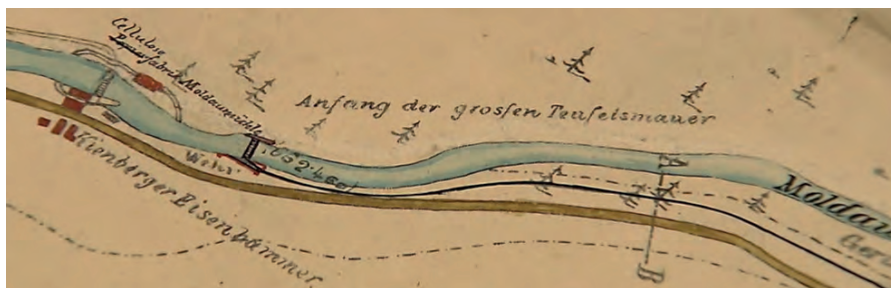 Cellulose
Papierfabrik Moldaumühle
Anfang der grossen Teufelsmauer
Wehr
Kienberger Eisenhämmer
Moldau
B